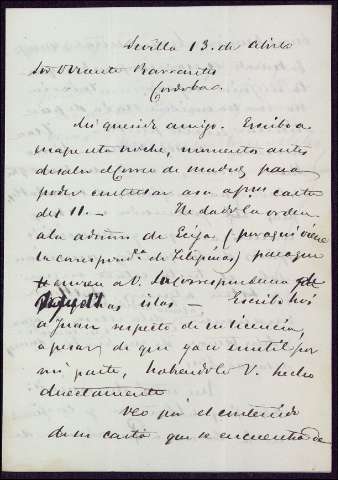 Sevilla 13. de Abril
Sor Dn Vicente Barrantes
Cordoba.
Mi querido amigo. Escribo a
esta noche, momentos antes
de salir el Correo de Madrid para
poder contestar a su aprda carta
del 11. — He dado la orden
a la admon de Ecija (por aqui viene
la correspond.a de Filipinas) para que
envien a V. la correspondencia de
aquellas islas — Escribo hoi
a Juan respecto de su licencia,
apesar de que ya es inutil por
mi parte, habiendolo V. hecho
directamente
Veo por el contenido
de su carta que se encuentra de